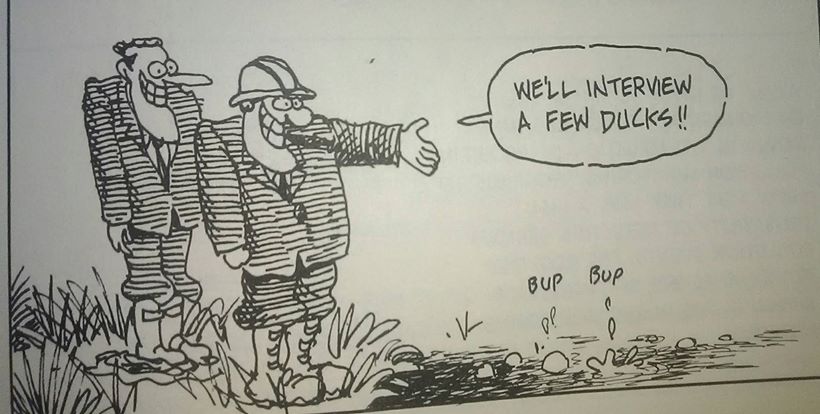 WE'LL INTERVIEW
A FEW DUCKS!!
BUP BUP